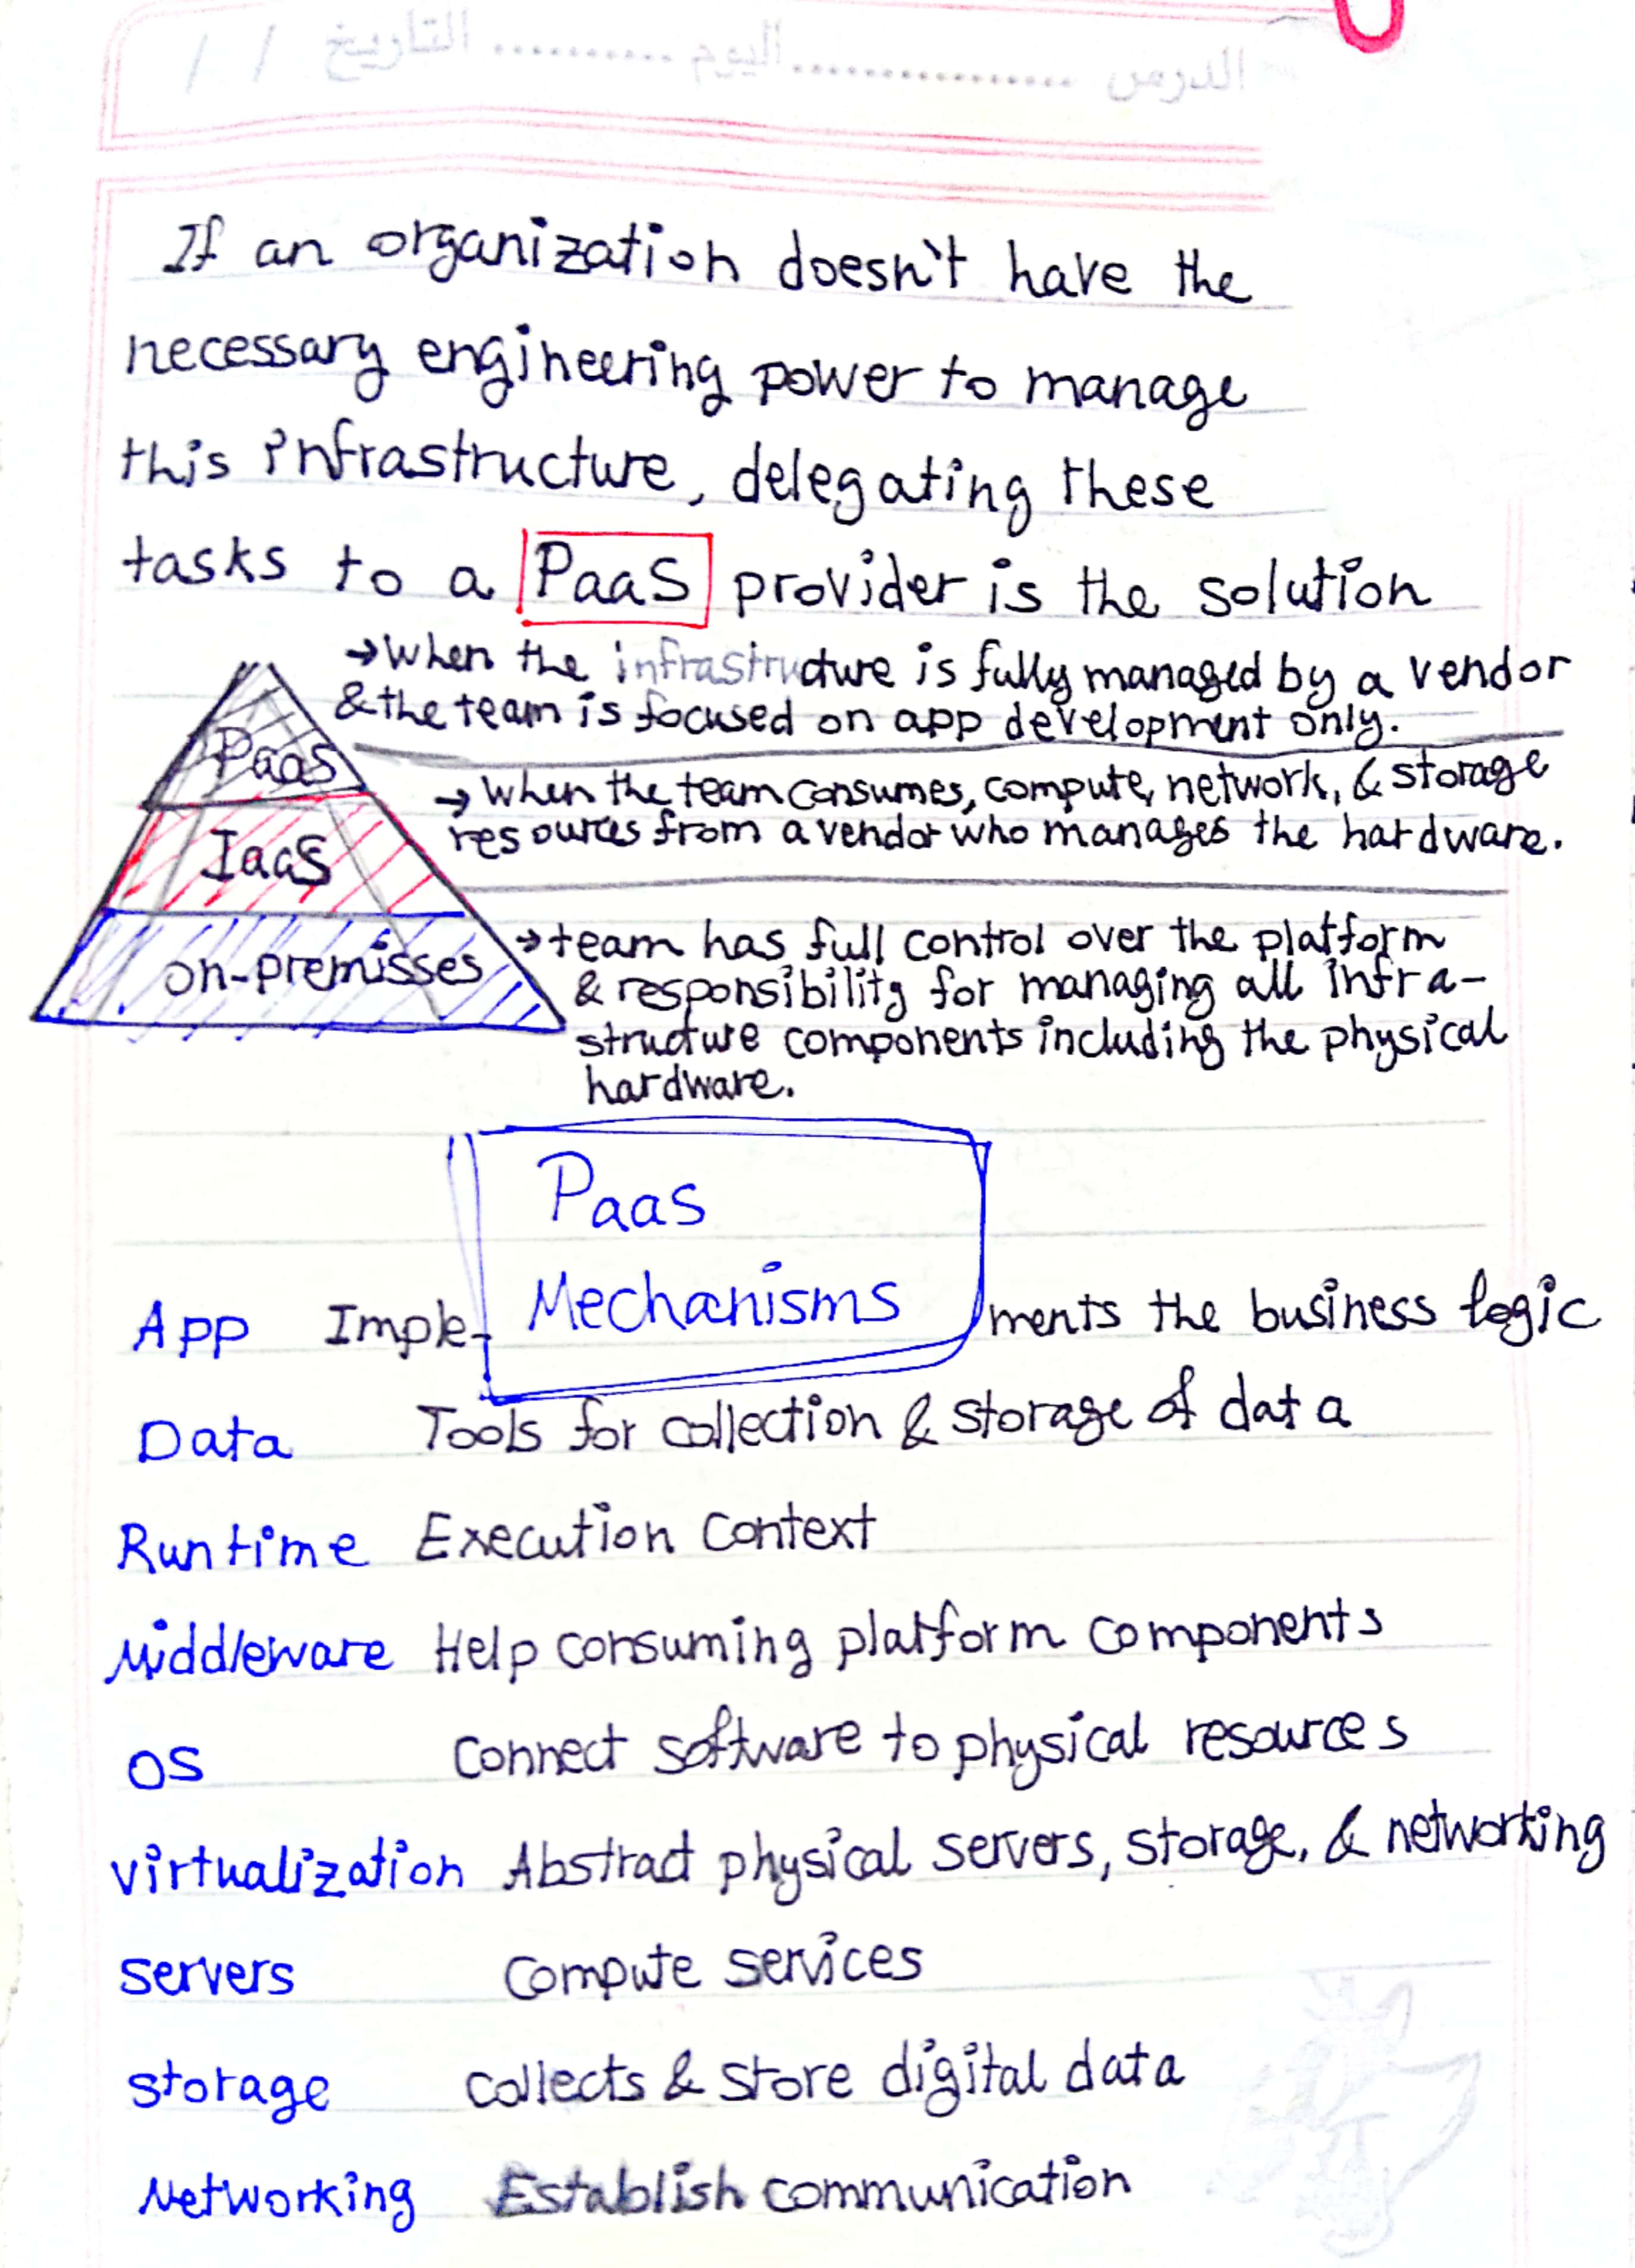 الدرس ................ اليوم .......... التاريخ / /
If an organization doesn't have the
necessary engineering power to manage
this infrastructure, delegating these
tasks to a PaaS provider is the solution
→ When the infrastructure is fully managed by a vendor
& the team is focused on app development only.
PaaS
→ When the team consumes, compute, network, & storage
resources from a vendor who manages the hardware.
IaaS
→ team has full control over the platform
& responsibility for managing all infra-
structure components including the physical
hardware.
on-premisses
PaaS
Mechanisms
App Imple- ments the business logic
Data Tools for collection & storage of data
Runtime Execution Context
Middleware Help consuming platform components
OS Connect software to physical resources
virtualization Abstract physical servers, storage, & networking
servers Compute services
storage collects & store digital data
Networking Establish communication